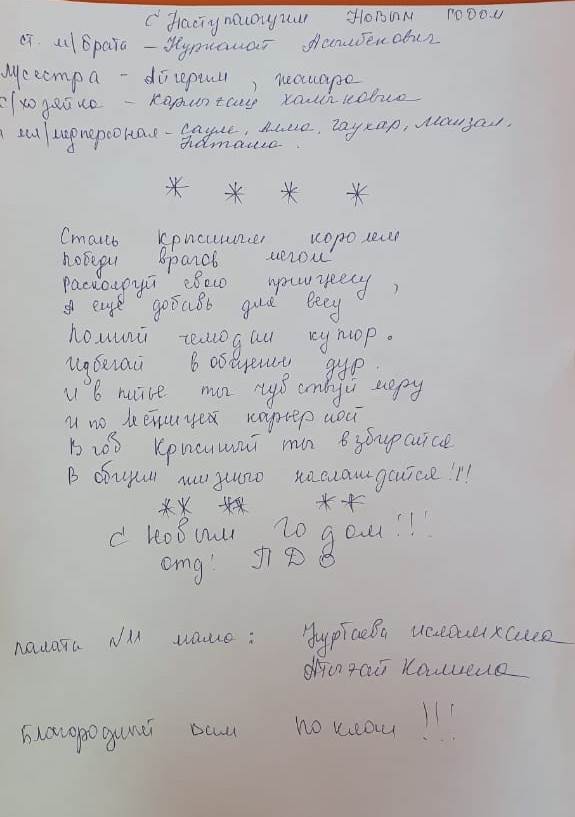 С Наступающим Новым годом
ст. м/брата - Нурканат Асылбекович
М/сестра - Айгерим, жанара
с/хозяйка - Карлыгаш
мл/медперсонал - Сауле, Алма, Гаухар, Маизал,
Наташа.
* * * *
Стань крысиным королем
Победи врагов мечом
Расколдуй свою принцессу,
А еще добавь для весу
Полный чемодан купюр.
Избегай в общеньи дур.
И в питье ты чувствуй меру
И по лестнице карьерной
В год Крысиный ты взбирайся
В общем жизнью наслаждайся!!!
** ** **
С Новым годом!!!
отд! ПДВ
палата №11 мама: Нуртаева исламхана
Камила
Благородный Вам поклон!!!